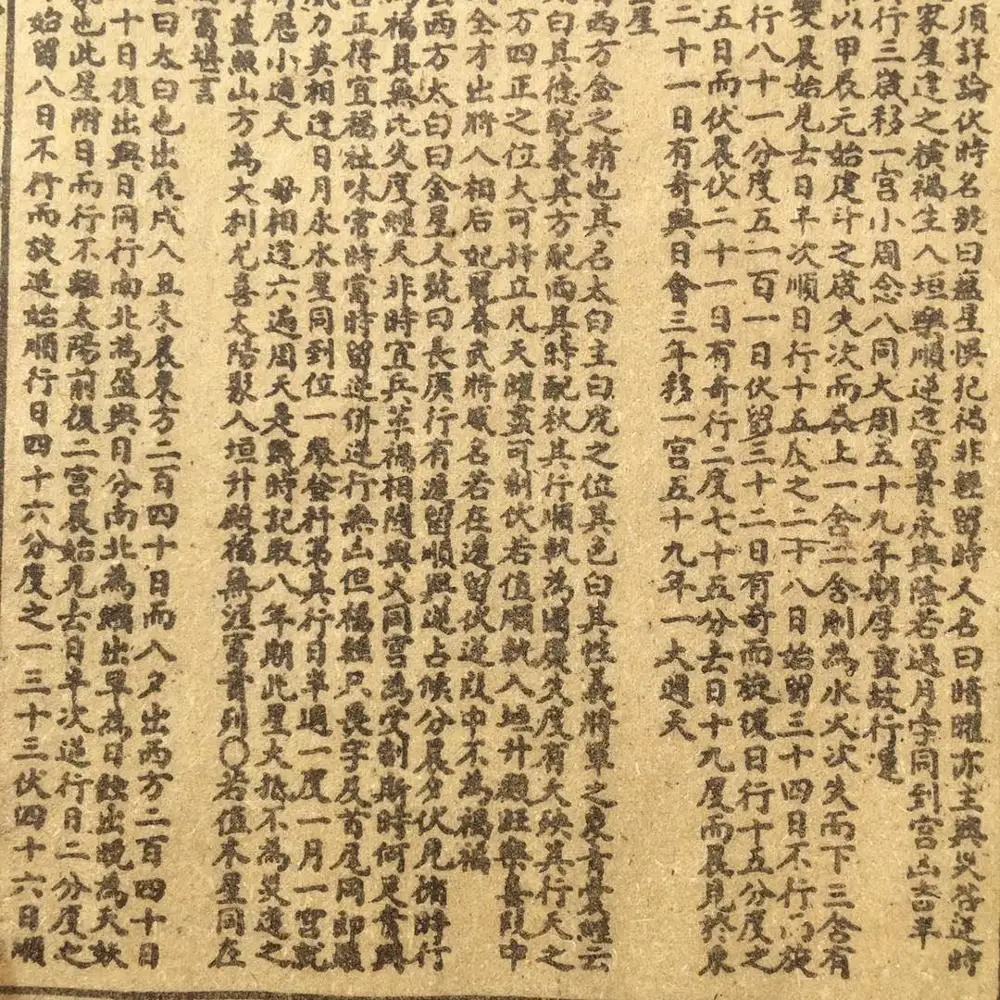 須詳論伏時名號曰蘊星悞犯禍非輕留時人名曰時曜亦主興災咎逆時
家星逢之橫禍生入垣樂順逆逆富貴永興隆若遇月孛同到宮山
行三歲移一宮小周念八同大周五十九年期厚重故行遲
以甲辰元始建斗之歲失次而上一舍二舍則為水火次失而下三舍有
晨始見去日半次順日行十五度之二十八日始留三十四日不行而旋
行八十一分度五一百一日伏留三十二日有奇而旋復日行十五分度之
五日而伏晨伏二十一日有奇行二度七十五分去日十九度而晨見於東
二十一日有奇與日會三年移一宮五十九年一大週天
星
西方金之精也其名太白主白虎之位其色白其性義將軍之東青臺經云
曰其德配義其方配西其時配秋其行順軌為國慶失度有大殃其行天之
方四正之位大可持立凡天曜盡可制伏若值順軌入垣升殿旺樂喜段中
全才出將入相后妃賢春武將威名若在遲留伏逆段中不為禍福
西方太白曰金星又號曰長庚行有遲留順與逆占候分晨夕伏見猶時行
為福具無比失度經天非時宜兵革禍相隨與火同宮為受制斯時何足貴與
正得宜福祉味常時當時留逆併逆行無山但福難只畏字反首尾岡即
力莫相逢日月永水星同到位一發登科第其行日半週一度一月一宮就
行愿小週天 母相逢六遍周天是幾時記取八年期此星大抵不為災遇之
蓋照山方為大利尤喜太陽聚入垣升殿福無涯富貴列〇若值木星同在
富填言
曰太白也出夜戌入丑未晨東方二百四十日而入夕出西方二百四十日
十日復出與日同行南北為盈與日分南北為縮出早為日蝕出晚為天妖
也此星附日而行不離太陽前後二宮晨始見去日半次逆行日二分度之
始留八日不行而旋逆始順行日四十六分度之一三十三伏四十六日順